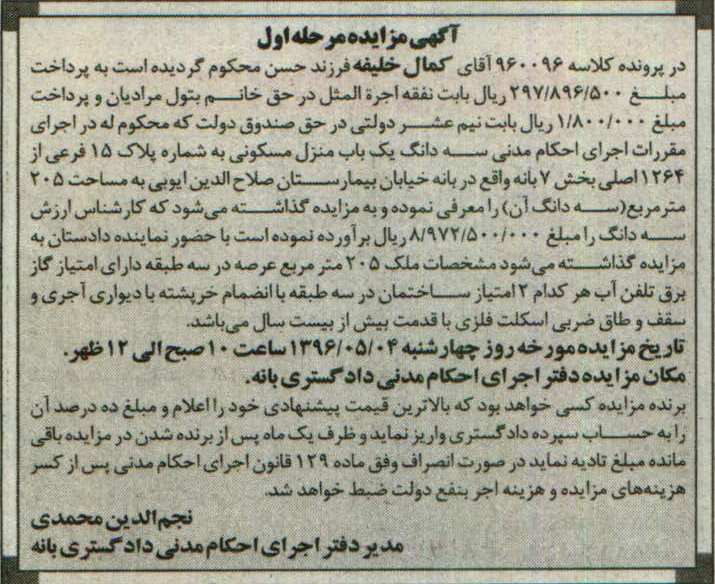 آگهی مزایده مرحله اول
در پرونده کلاسه ۹۶۰۰۹۶ آقای کمال خلیفه فرزند حسن محکوم گردیده است به پرداخت
مبلغ ۲۹۷/۸۹۶/۵۰۰ ریال بابت نفقه اجرة المثل در حق خانم بتول مرادیان و پرداخت
مبلغ ۱/۸۰۰/۰۰۰ ریال بابت نیم عشر دولتی در حق صندوق دولت که محکوم له در اجرای
مقررات اجرای احکام مدنی سه دانگ یک باب منزل مسکونی به شماره پلاک ۱۵ فرعی از
۱۲۶۴ اصلی بخش ۷ بانه واقع در بانه خیابان بیمارستان صلاح الدین ایوبی به مساحت ۲۰۵
مترمربع(سه دانگ آن) را معرفی نموده و به مزایده گذاشته می‌شود که کارشناس ارزش
سه دانگ را مبلغ ۸/۹۷۲/۵۰۰/۰۰۰ ریال برآورده نموده است با حضور نماینده دادستان به
مزایده گذاشته می‌شود مشخصات ملک ۲۰۵ متر مربع عرصه در سه طبقه دارای امتیاز گاز
برق تلفن آب هر کدام ۲ امتیاز ساختمان در سه طبقه با انضمام خرپشته با دیواری آجری و
سقف و طاق ضربی اسکلت فلزی با قدمت بیش از بیست سال می‌باشد.
تاریخ مزایده مورخه روز چهارشنبه ۱۳۹۶/۰۵/۰۴ ساعت ۱۰ صبح الی ۱۲ ظهر.
مکان مزایده دفتر اجرای احکام مدنی دادگستری بانه.
برنده مزایده کسی خواهد بود که بالاترین قیمت پیشنهادی خود را اعلام و مبلغ ده درصد آن
را به حساب سپرده دادگستری واریز نماید و ظرف یک ماه پس از برنده شدن در مزایده باقی
مانده مبلغ تادیه نماید در صورت انصراف وفق ماده ۱۲۹ قانون اجرای احکام مدنی پس از کسر
هزینه‌های مزایده و هزینه اجر بنفع دولت ضبط خواهد شد.
نجم الدین محمدی
مدیر دفتر اجرای احکام مدنی دادگستری بانه